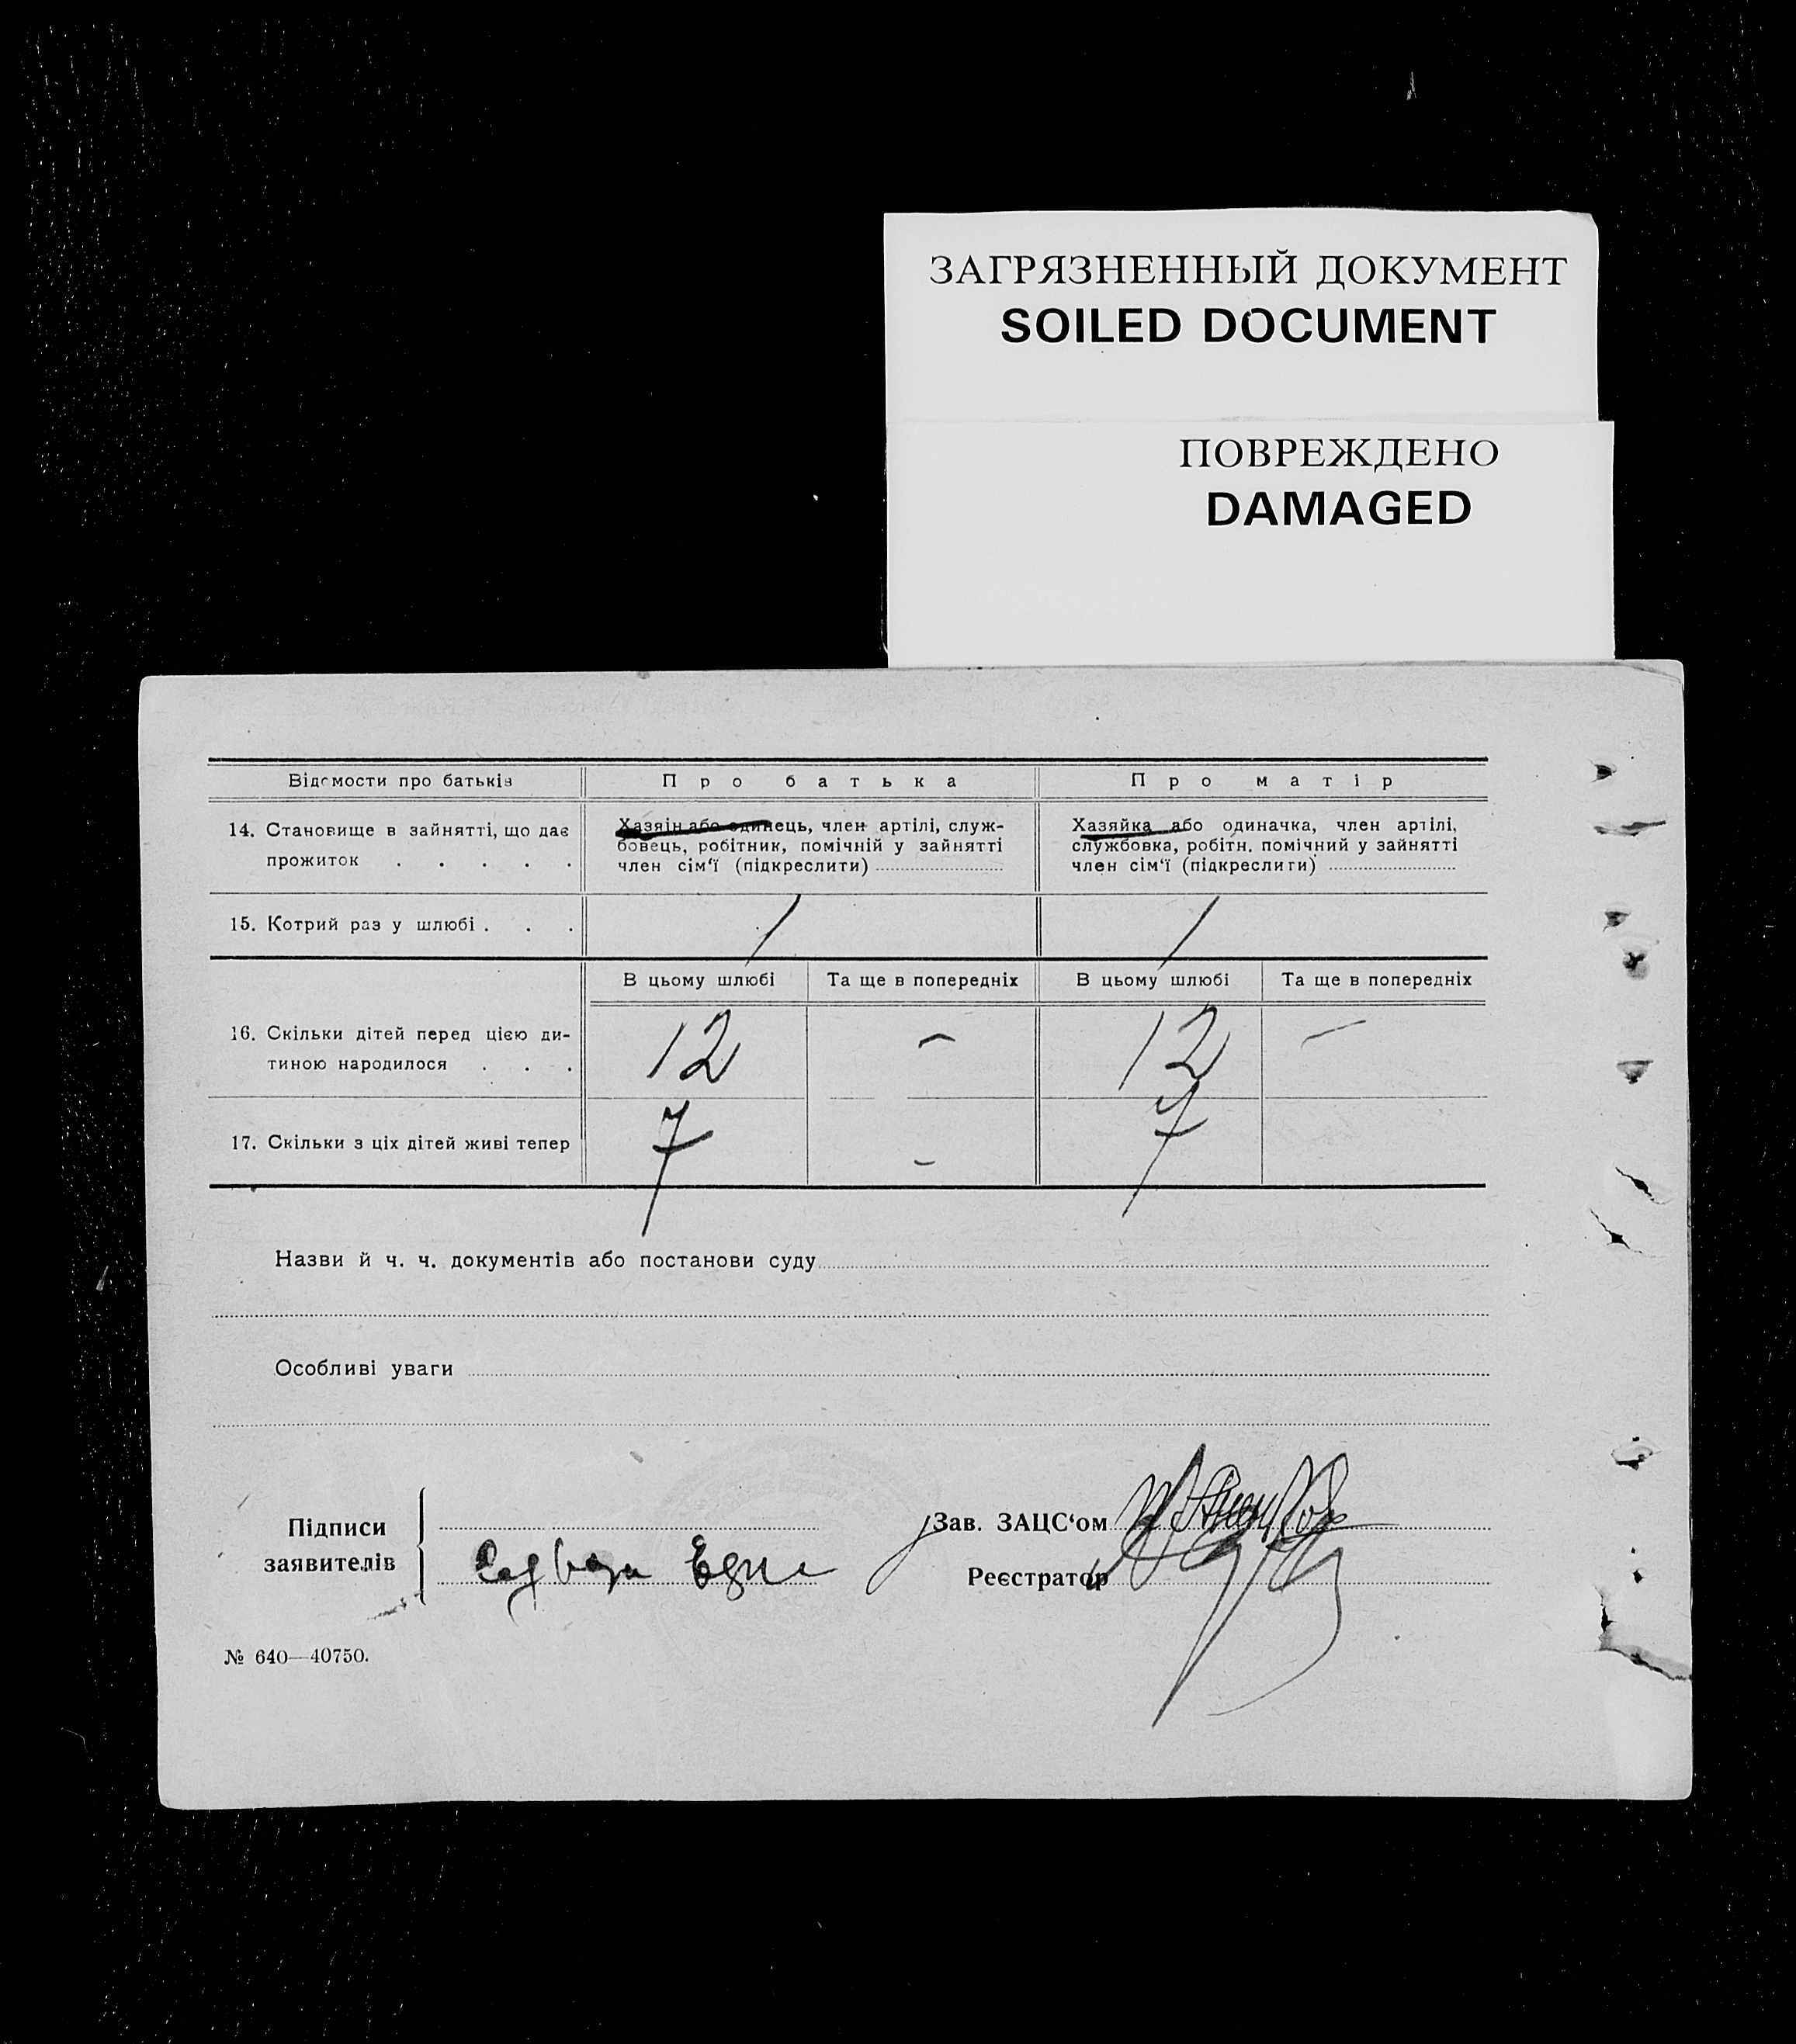 ЗАГРЯЗНЕННЫЙ ДОКУМЕНТ
SOILED DOCUMENT
ПОВРЕЖДЕНО
DAMAGED
Відомости про батьків
Про батька
Про матір
14. Становище в зайнятті, що дає
прожиток . . . . .
Хазяїн або одинець, член артілі, служ-
бовець, робітник, помічній у зайнятті
член сім‘ї (підкреслити)
Хазяйка або одиначка, член артілі,
службовка, робітн. помічний у зайнятті
член сім‘ї (підкреслити)
15. Котрий раз у шлюбі . . .
1
1
В цьому шлюбі
Та ще в попередніх
В цьому шлюбі
Та ще в попередніх
16. Скільки дітей перед цією ди-
тиною народилося . . .
12
–
12
–
17. Скільки з ціх дітей живі тепер
7
–
7
Назви й ч. ч. документів або постанови суду
Особливі уваги
Підписи
заявителів
Зав. ЗАЦС‘ом
Реєстратор
№ 640—40750.